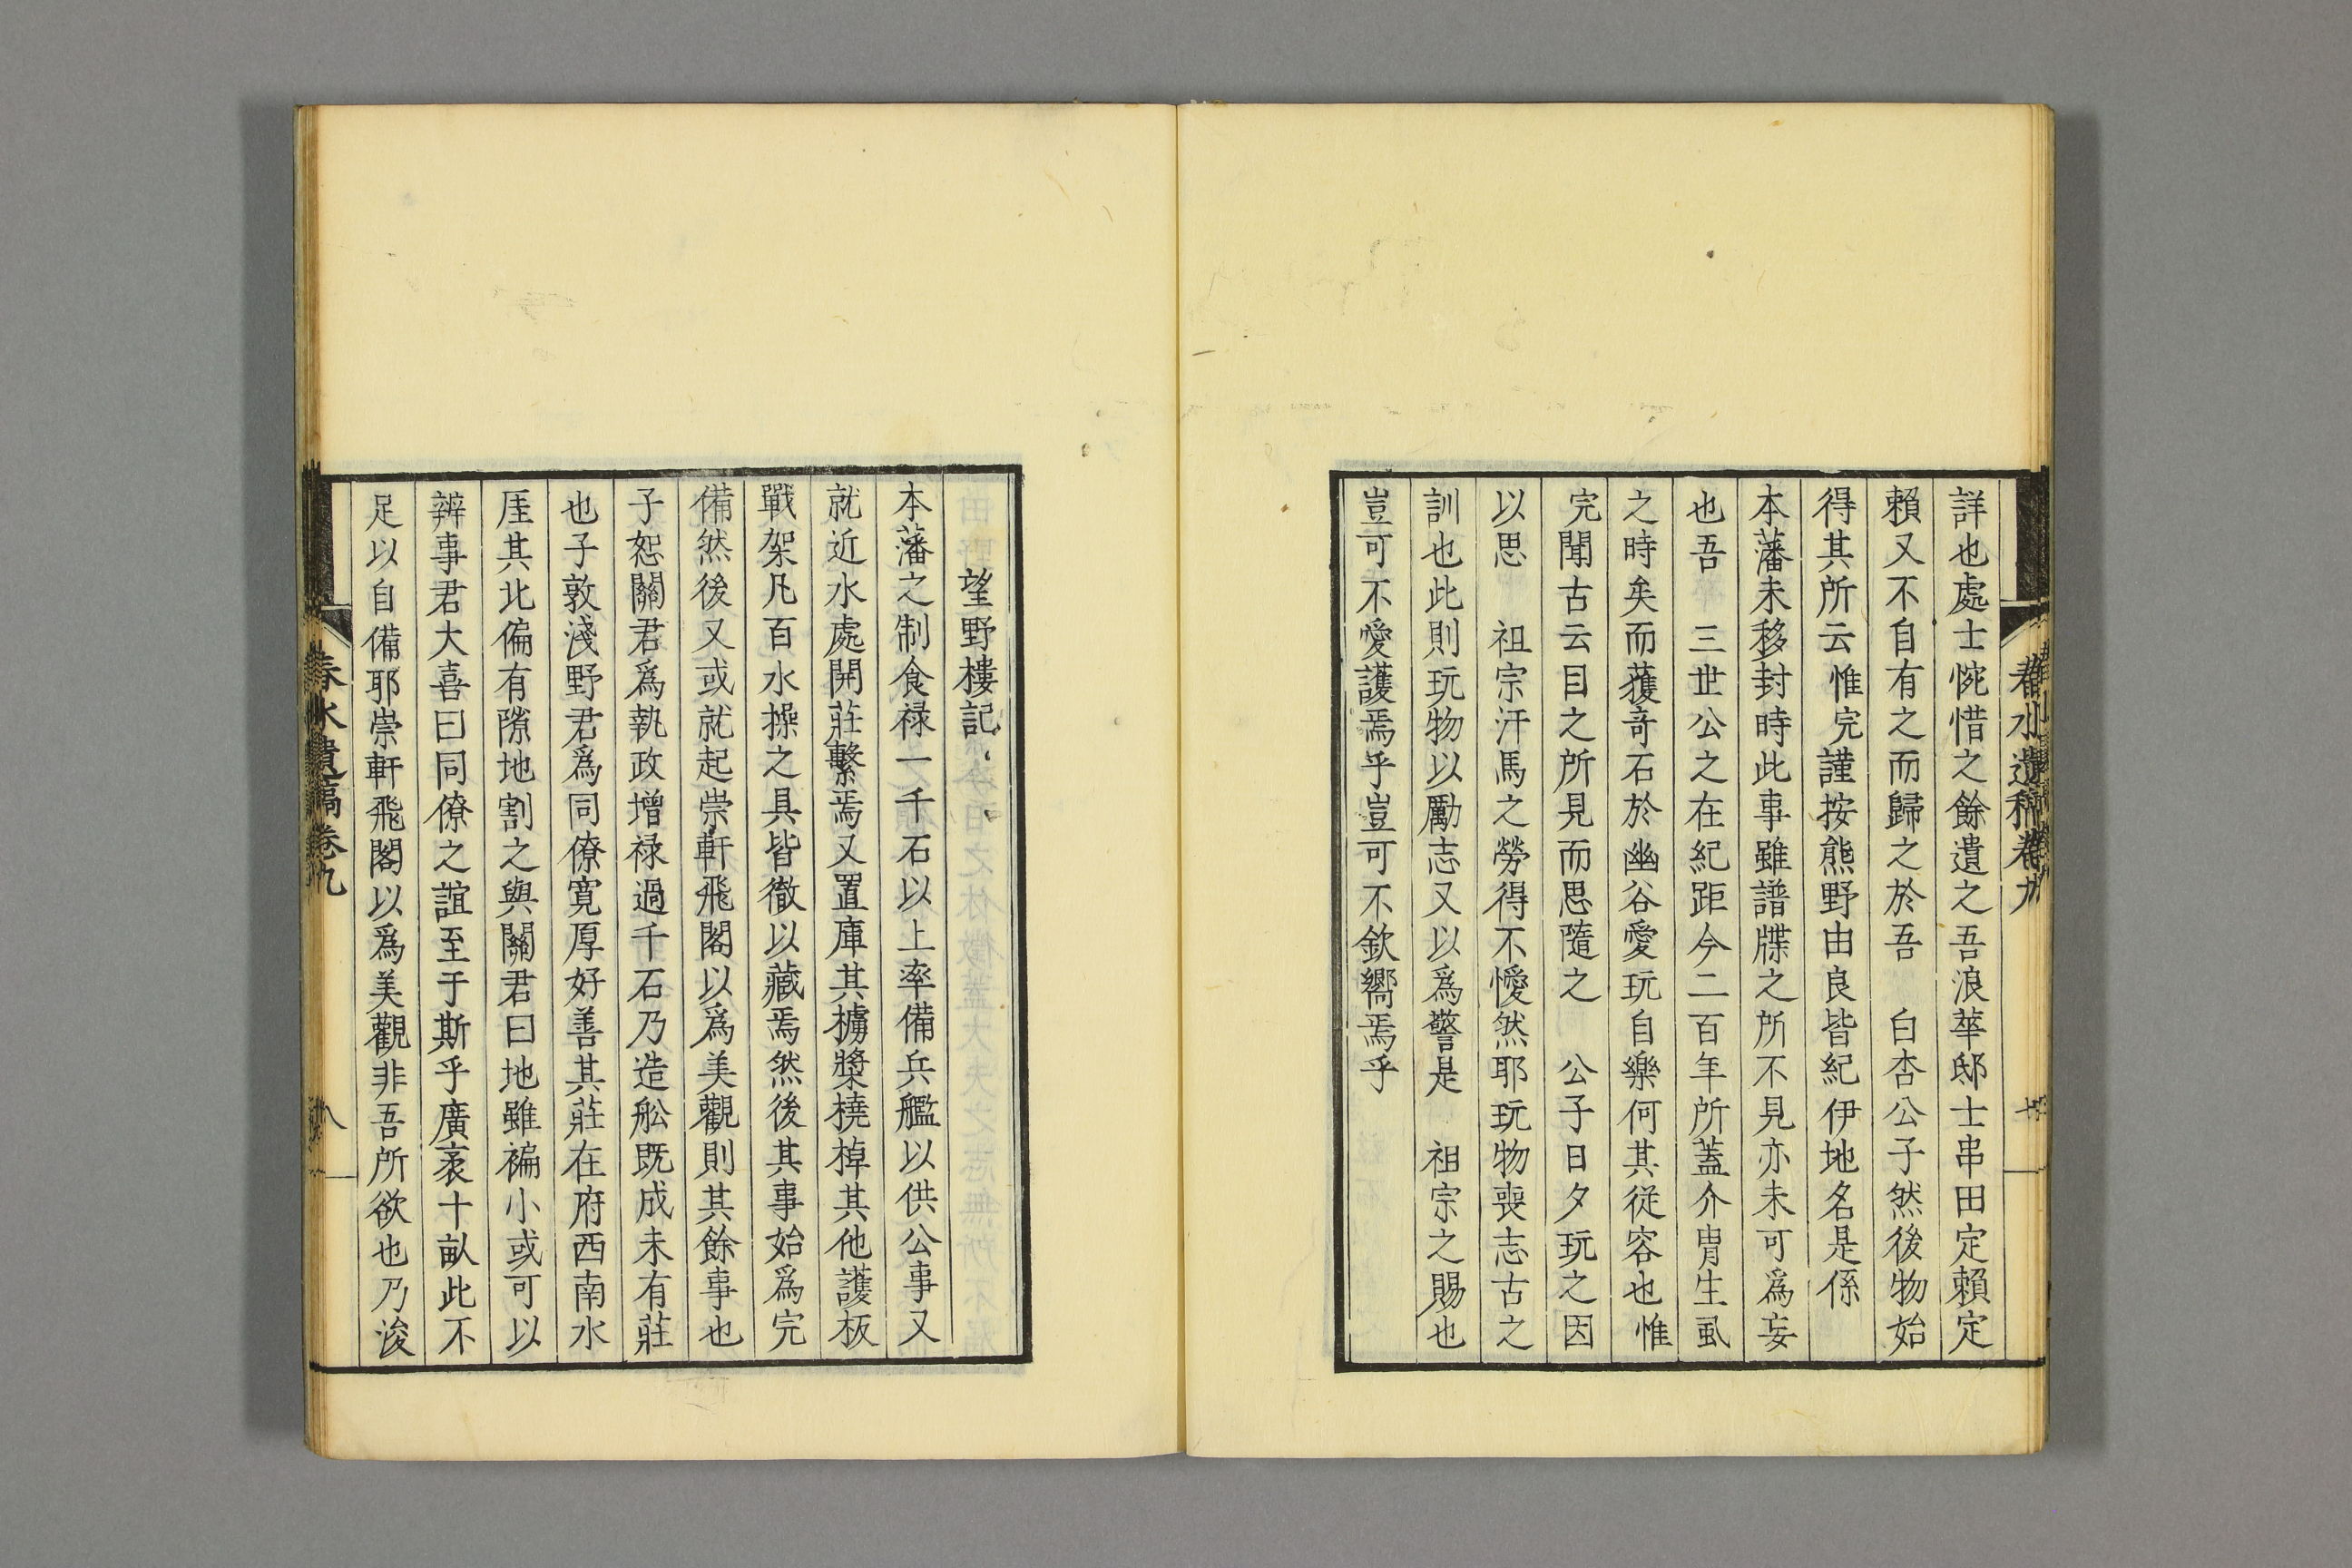 春水遺稿卷九
七
詳也處士惋惜之餘遺之吾浪華邸士串田定賴定
賴又不自有之而歸之於吾 白杏公子然後物始
得其所云惟完謹按熊野由良皆紀伊地名是係
本藩未移封時此事雖譜牒之所不見亦未可爲妄
也吾 三世公之在紀距今二百年所蓋介胄生虱
之時矣而獲奇石於幽谷愛玩自樂何其從容也惟
完聞古云目之所見而思隨之 公子日夕玩之因
以思 祖宗汗馬之勞得不懓然耶玩物喪志古之
訓也此則玩物以勵志又以爲警是 祖宗之賜也
豈可不愛護焉乎豈可不欽嚮焉乎
望野樓記
本藩之制食禄一千石以上率備兵艦以供公事又
就近水處開莊繫焉又置庫其㯭槳橈棹其他護板
戰架凡百水操之具皆徹以藏焉然後其事始爲完
備然後又或就起崇軒飛閣以爲美觀則其餘事也
子恕關君爲執政增禄過千石乃造舩既成未有莊
也子敦淺野君爲同僚寬厚好善其莊在府西南水
厓其北偏有隙地割之與關君曰地雖褊小或可以
辨事君大喜曰同僚之誼至于斯乎廣袤十畒此不
足以自備耶崇軒飛閣以爲美觀非吾所欲也乃浚
春水遺稿卷九
八